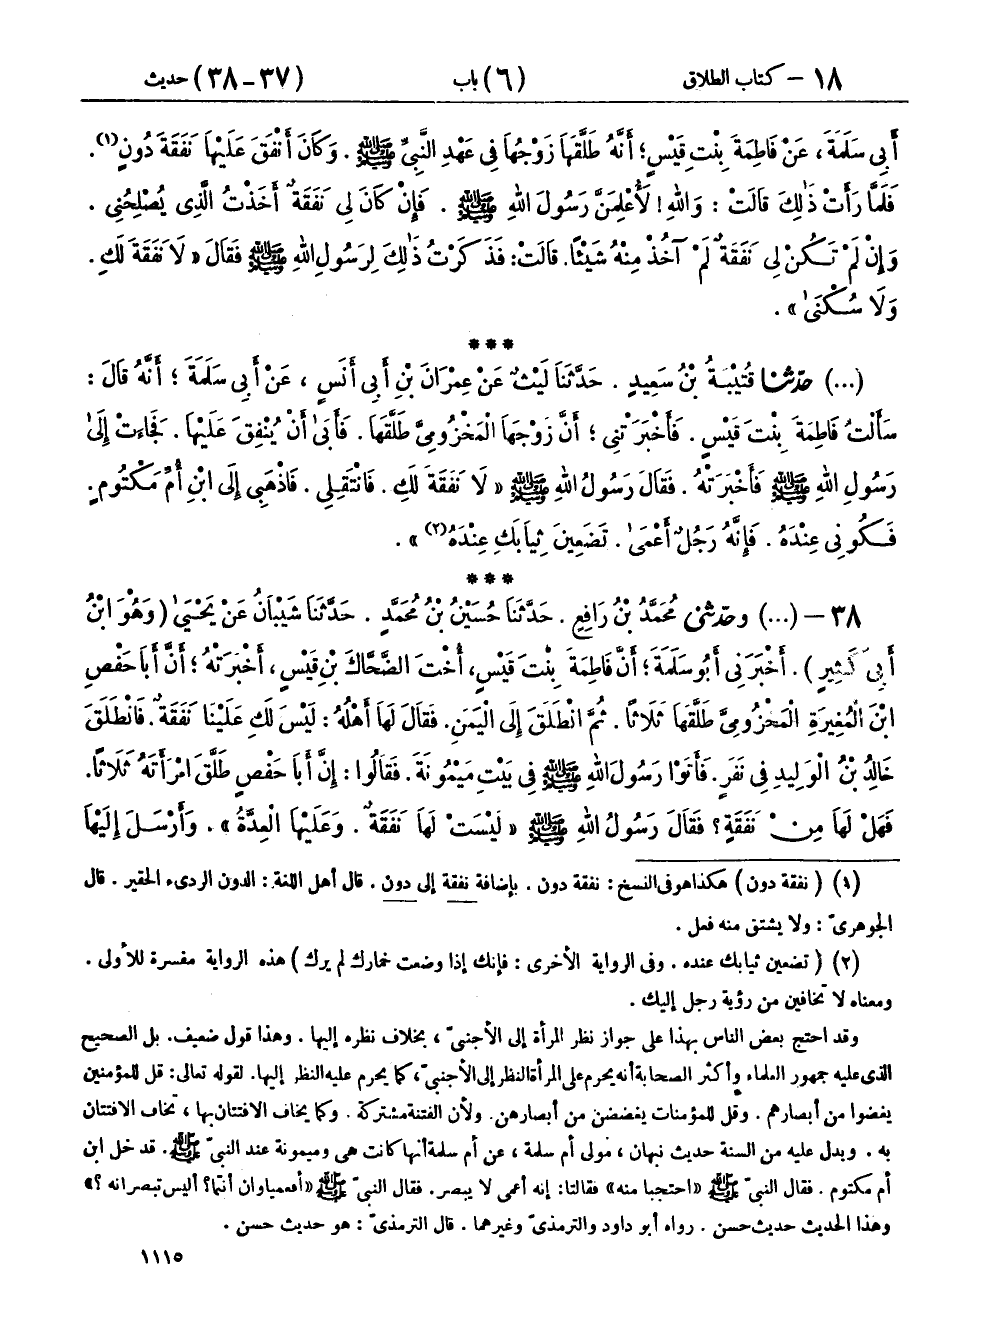 ١٨ – كتاب الطلاق (٦) باب (٣٧-٣٨) حديث
أَبِي سَلَمَةَ، عَنْ فَاطِمَةَ بِنْتِ قَيْسٍ؛ أَنَّهُ طَلَّقَهَا زَوْجُهَا فِي عَهْدِ النَّبِيِّ ﷺ. وَكَانَ أَنْفَقَ عَلَيْهَا نَفَقَةَ دُونٍ(١).
فَلَمَّا رَأَتْ ذٰلِكَ قَالَتْ: وَاللهِ! لَأُعْلِمَنَّ رَسُولَ اللهِ ﷺ. فَإِنْ كَانَ لِي نَفَقَةٌ أَخَذْتُ الَّذِي يُصْلِحُنِي.
وَإِنْ لَمْ تَكُنْ لِي نَفَقَةٌ لَمْ آخُذْ مِنْهُ شَيْئًا. قَالَتْ: فَذَكَرْتُ ذٰلِكَ لِرَسُولِ اللهِ ﷺ فَقَالَ « لَا نَفَقَةَ لَكِ.
وَلَا سُكْنَىٰ ».
***
(...) حدّثنا قُتَيْبَةُ بْنُ سَعِيدٍ. حَدَّثَنَا لَيْثٌ عَنْ عِمْرَانَ بْنِ أَبِي أَنَسٍ، عَنْ أَبِي سَلَمَةَ؛ أَنَّهُ قَالَ:
سَأَلْتُ فَاطِمَةَ بِنْتَ قَيْسٍ. فَأَخْبَرَتْنِي؛ أَنَّ زَوْجَهَا الْمَخْزُومِيَّ طَلَّقَهَا. فَأَبَىٰ أَنْ يُنْفِقَ عَلَيْهَا. فَجَاءَتْ إِلَىٰ
رَسُولِ اللهِ ﷺ فَأَخْبَرَتْهُ. فَقَالَ رَسُولُ اللهِ ﷺ « لَا نَفَقَةَ لَكِ. فَانْتَقِلِي. فَاذْهَبِي إِلَى ابْنِ أُمِّ مَكْتُومٍ.
فَكُونِي عِنْدَهُ. فَإِنَّهُ رَجُلٌ أَعْمَىٰ. تَضَعِينَ ثِيَابَكِ عِنْدَهُ(٢) ».
***
٣٨ – (...) وحدّثني مُحَمَّدُ بْنُ رَافِعٍ. حَدَّثَنَا حُسَيْنُ بْنُ مُحَمَّدٍ. حَدَّثَنَا شَيْبَانُ عَنْ يَحْيَىٰ (وَهُوَ ابْنُ
أَبِي كَثِيرٍ). أَخْبَرَنِي أَبُو سَلَمَةَ؛ أَنَّ فَاطِمَةَ بِنْتَ قَيْسٍ، أُخْتَ الضَّحَّاكِ بْنِ قَيْسٍ، أَخْبَرَتْهُ؛ أَنَّ أَبَا حَفْصِ
ابْنَ الْمُغِيرَةِ الْمَخْزُومِيَّ طَلَّقَهَا ثَلَاثًا. ثُمَّ انْطَلَقَ إِلَى الْيَمَنِ. فَقَالَ لَهَا أَهْلُهُ: لَيْسَ لَكِ عَلَيْنَا نَفَقَةٌ. فَانْطَلَقَ
خَالِدُ بْنُ الْوَلِيدِ فِي نَفَرٍ. فَأَتَوْا رَسُولَ اللهِ ﷺ فِي بَيْتِ مَيْمُونَةَ. فَقَالُوا: إِنَّ أَبَا حَفْصٍ طَلَّقَ امْرَأَتَهُ ثَلَاثًا.
فَهَلْ لَهَا مِنْ نَفَقَةٍ؟ فَقَالَ رَسُولُ اللهِ ﷺ « لَيْسَتْ لَهَا نَفَقَةٌ. وَعَلَيْهَا الْعِدَّةُ ». وَأَرْسَلَ إِلَيْهَا
(١) (نفقة دون) هكذا هو في النسخ: نفقة دون. بإضافة نفقة إلى دون. قال أهل اللغة: الدون الرديء الحقير. قال
الجوهريّ: ولا يشتق منه فعل.
(٢) (تضعين ثيابك عنده. وفي الرواية الأخرى: فإنك إذا وضعت خمارك لم يرك) هذه الرواية مفسرة للأولى.
ومعناه لا تخافين من رؤية رجل إليك.
وقد احتج بعض الناس بهذا على جواز نظر المرأة إلى الأجنبيّ، بخلاف نظره إليها. وهذا قول ضعيف. بل الصحيح
الذي عليه جمهور العلماء وأكثر الصحابة أنه يحرم على المرأة النظر إلى الأجنبيّ، كما يحرم عليه النظر إليها. لقوله تعالى: قل للمؤمنين
يغضوا من أبصارهم. وقل للمؤمنات يغضضن من أبصارهن. ولأن الفتنة مشتركة. وكما يخاف الافتتان بها، تخاف الافتتان
به. ويدل عليه من السنة حديث نبهان، مولى أم سلمة، عن أم سلمة أنها كانت هي وميمونة عند النبيّ ﷺ. فدخل ابن
أم مكتوم. فقال النبيّ ﷺ «احتجبا منه» فقالتا: إنه أعمى لا يبصر. فقال النبيّ ﷺ «أفعمياوان أنتما؟ أليس تبصرانه؟»
وهذا الحديث حديث حسن. رواه أبو داود والترمذيّ وغيرهما. قال الترمذيّ: هو حديث حسن.
١١١٥